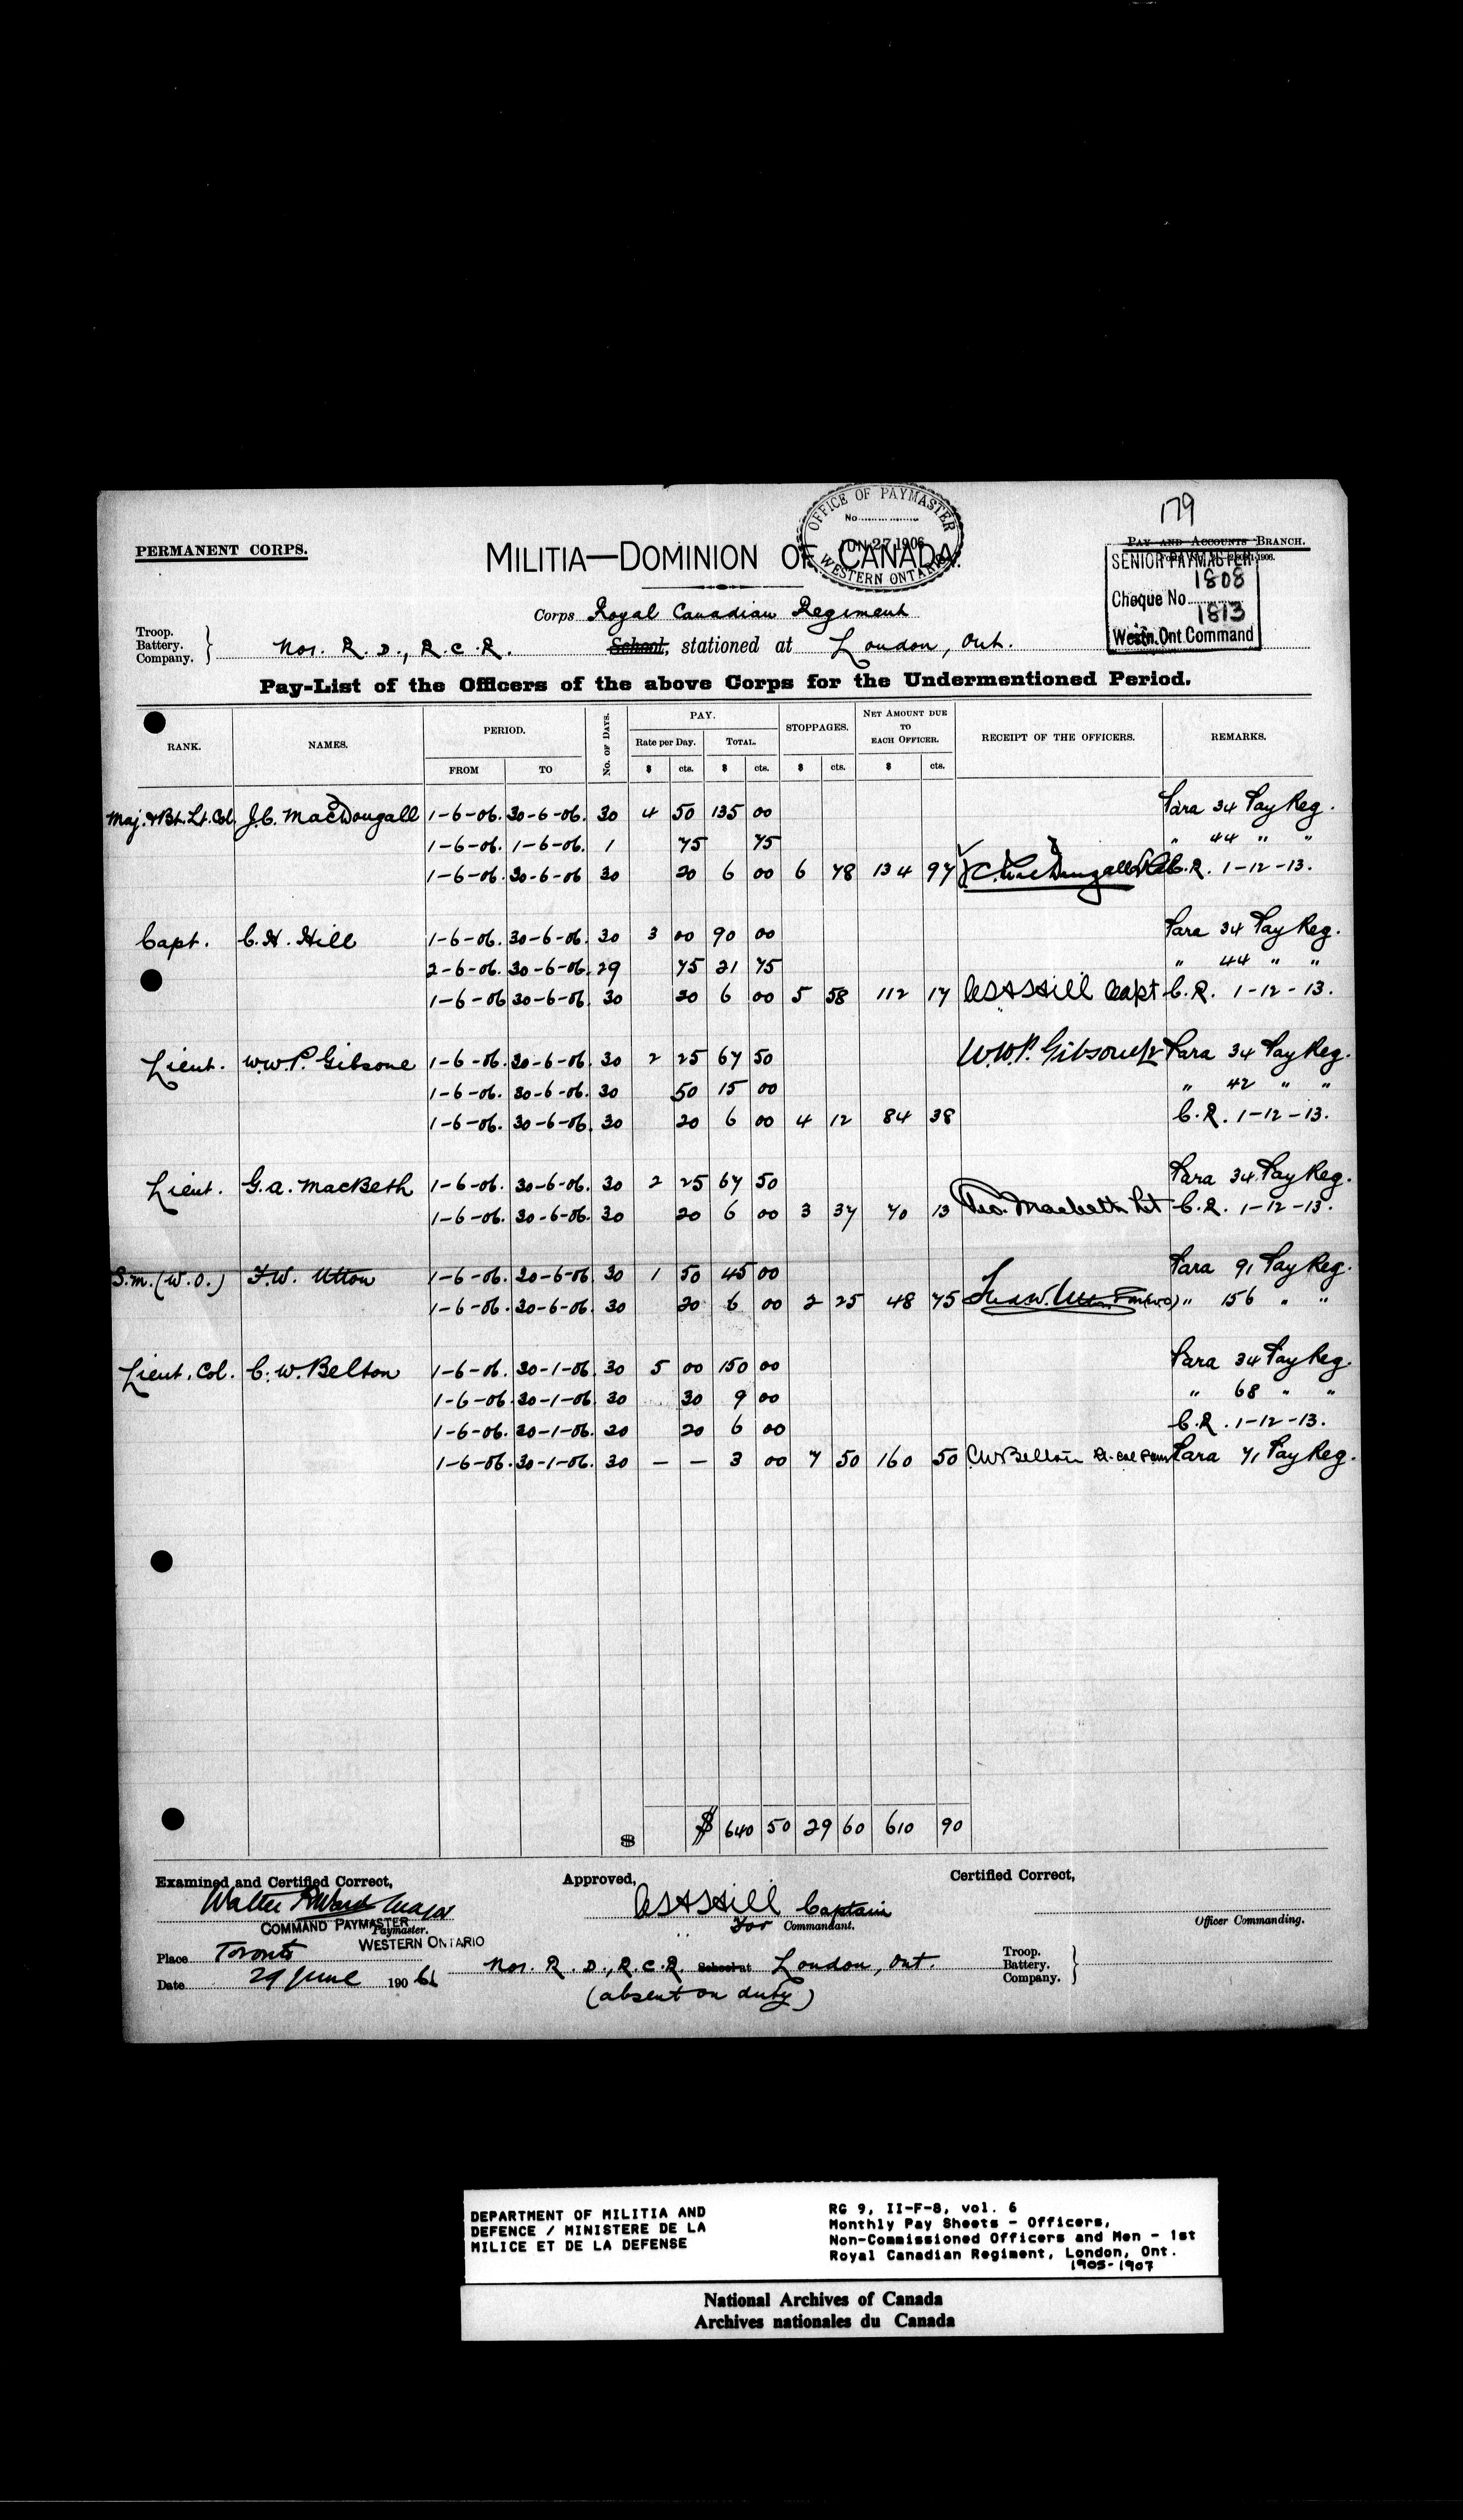 179
OFFICE OF PAYMASTER
No
JUN 27 1906
WESTERN ONTARIO
PERMANENT CORPS.
MILITIA—DOMINION OF CANADA.
PAY AND ACCOUNTS BRANCH.
SENIOR PAYMASTER
1808
Cheque No
1813
Westn. Ont. Command
Corps Royal Canadian Regiment
Troop.
Battery.
Company.
Nos. R. D., R. C. R. School, stationed at London, Ont.
Pay-List of the Officers of the above Corps for the Undermentioned Period.
RANK. NAMES. PERIOD. No. OF DAYS. PAY. STOPPAGES. NET AMOUNT DUE TO EACH OFFICER. RECEIPT OF THE OFFICERS. REMARKS.
FROM TO Rate per Day. TOTAL.
$ cts. $ cts. $ cts. $ cts.
Maj. & Bt. Lt. Col. J.C. MacDougall 1-6-06. 30-6-06. 30 4 50 135 00 Para 34 Pay Reg.
1-6-06. 1-6-06. 1 75 75 " 44 " "
1-6-06. 30-6-06 30 20 6 00 6 78 134 97 J.C. MacDougall C.R. 1-12-13.
Capt. C.H. Hill 1-6-06. 30-6-06. 30 3 00 90 00 Para 34 Pay Reg.
2-6-06. 30-6-06. 29 75 21 75 " 44 " "
1-6-06 30-6-06. 30 20 6 00 5 58 112 17 C H Hill Capt C.R. 1-12-13.
Lieut. W.W.P. Gibsone 1-6-06. 30-6-06. 30 2 25 67 50 W.W.P. Gibsone Lt Para 34 Pay Reg.
1-6-06. 30-6-06. 30 50 15 00 " 42 " "
1-6-06. 30-6-06. 30 20 6 00 4 12 84 38 C.R. 1-12-13.
Lieut. G.A. MacBeth 1-6-06. 30-6-06. 30 2 25 67 50 Para 34 Pay Reg.
1-6-06. 30-6-06. 30 20 6 00 3 37 70 13 Geo. Macbeth Lt C.R. 1-12-13.
S.M. (W.O.) F.W. Utton 1-6-06. 30-6-06 30 1 50 45 00 Para 91 Pay Reg.
1-6-06. 30-6-06. 30 20 6 00 2 25 48 75 " 156 " "
Lieut. Col. C.W. Belton 1-6-06. 30-1-06. 30 5 00 150 00 Para 34 Pay Reg.
1-6-06. 30-1-06. 30 30 9 00 " 68 " "
1-6-06. 30-1-06. 30 20 6 00 C.R. 1-12-13.
1-6-06. 30-1-06. 30 — — 3 00 7 50 160 50 CW Belton Para 71 Pay Reg.
$ $ 640 50 29 60 610 90
Examined and Certified Correct, Approved, Certified Correct,
Walter R Ward Major C H Hill Captain
COMMAND PAYMASTER Paymaster. For Commandant. Officer Commanding.
WESTERN ONTARIO
Place Toronto Nos. R. D., R. C. R. School at London, Ont. Troop.
Battery.
Company.
Date 29 June 1906
(absent on duty)
DEPARTMENT OF MILITIA AND
DEFENCE / MINISTERE DE LA
MILICE ET DE LA DEFENSE
RG 9, II-F-8, vol. 6
Monthly Pay Sheets - Officers,
Non-Commissioned Officers and Men - 1st
Royal Canadian Regiment, London, Ont.
1905-1907
National Archives of Canada
Archives nationales du Canada